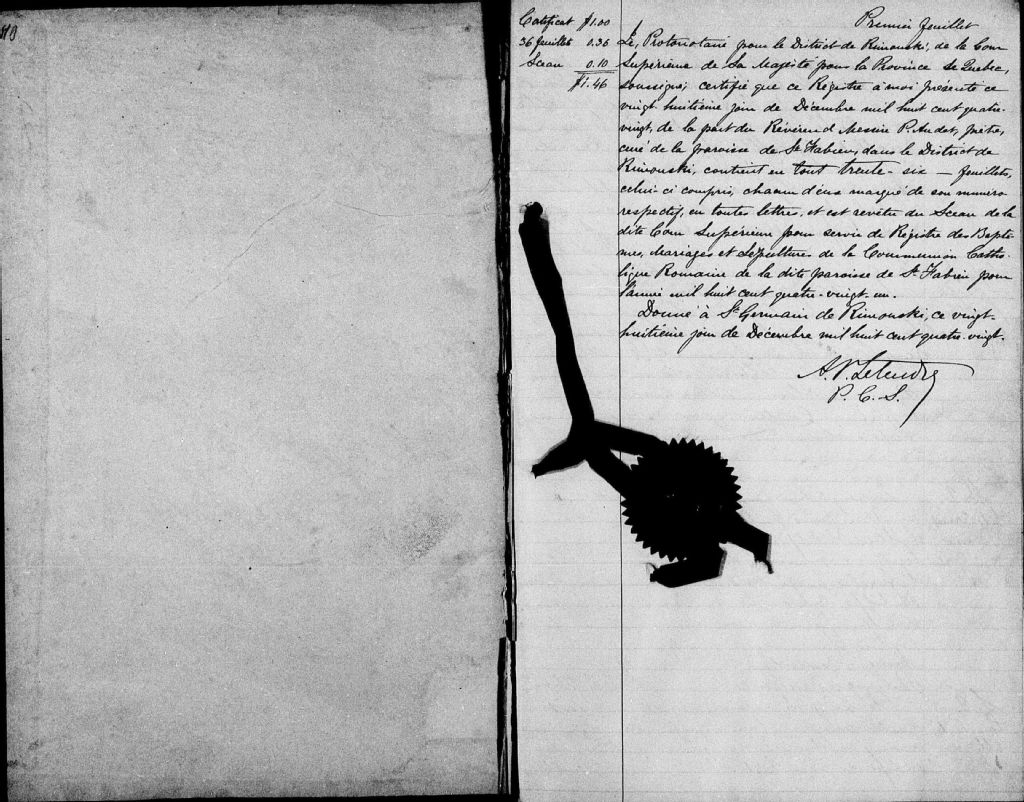 Premier feuillet
Certificat $1.00
36 feuillets 0.36
Sceau 0.10
$1.46
Le, Protonotaire pour le District de Rimouski, de la Cour
Supérieure de Sa Majesté pour la Province de Quebec,
soussigné; certifie que ce Régistre à moi présenté ce
vingt huitième jour de Décembre mil huit cent quatre-
vingt, de la part du Révérend Messire P. Audet, prêtre,
curé de la paroisse de St Fabien, dans le District de
Rimouski, contient en tout trente-six — feuillets,
celui ci compris, chacun d'eux marqué de son numéro
respectif, en toutes lettres, et est revêtu du Sceau de la
dite Cour Supérieure pour servir de Régistre des Baptê-
mes, Mariages et Sépultures de la Communion Catho-
lique Romaine de la dite paroisse de St Fabien pour
l'année mil huit cent quatre-vingt-un.
Donné à St Germain de Rimouski, ce vingt-
huitième jour de Décembre mil huit cent quatre-vingt.
A. P. Letendre
P. C. S.